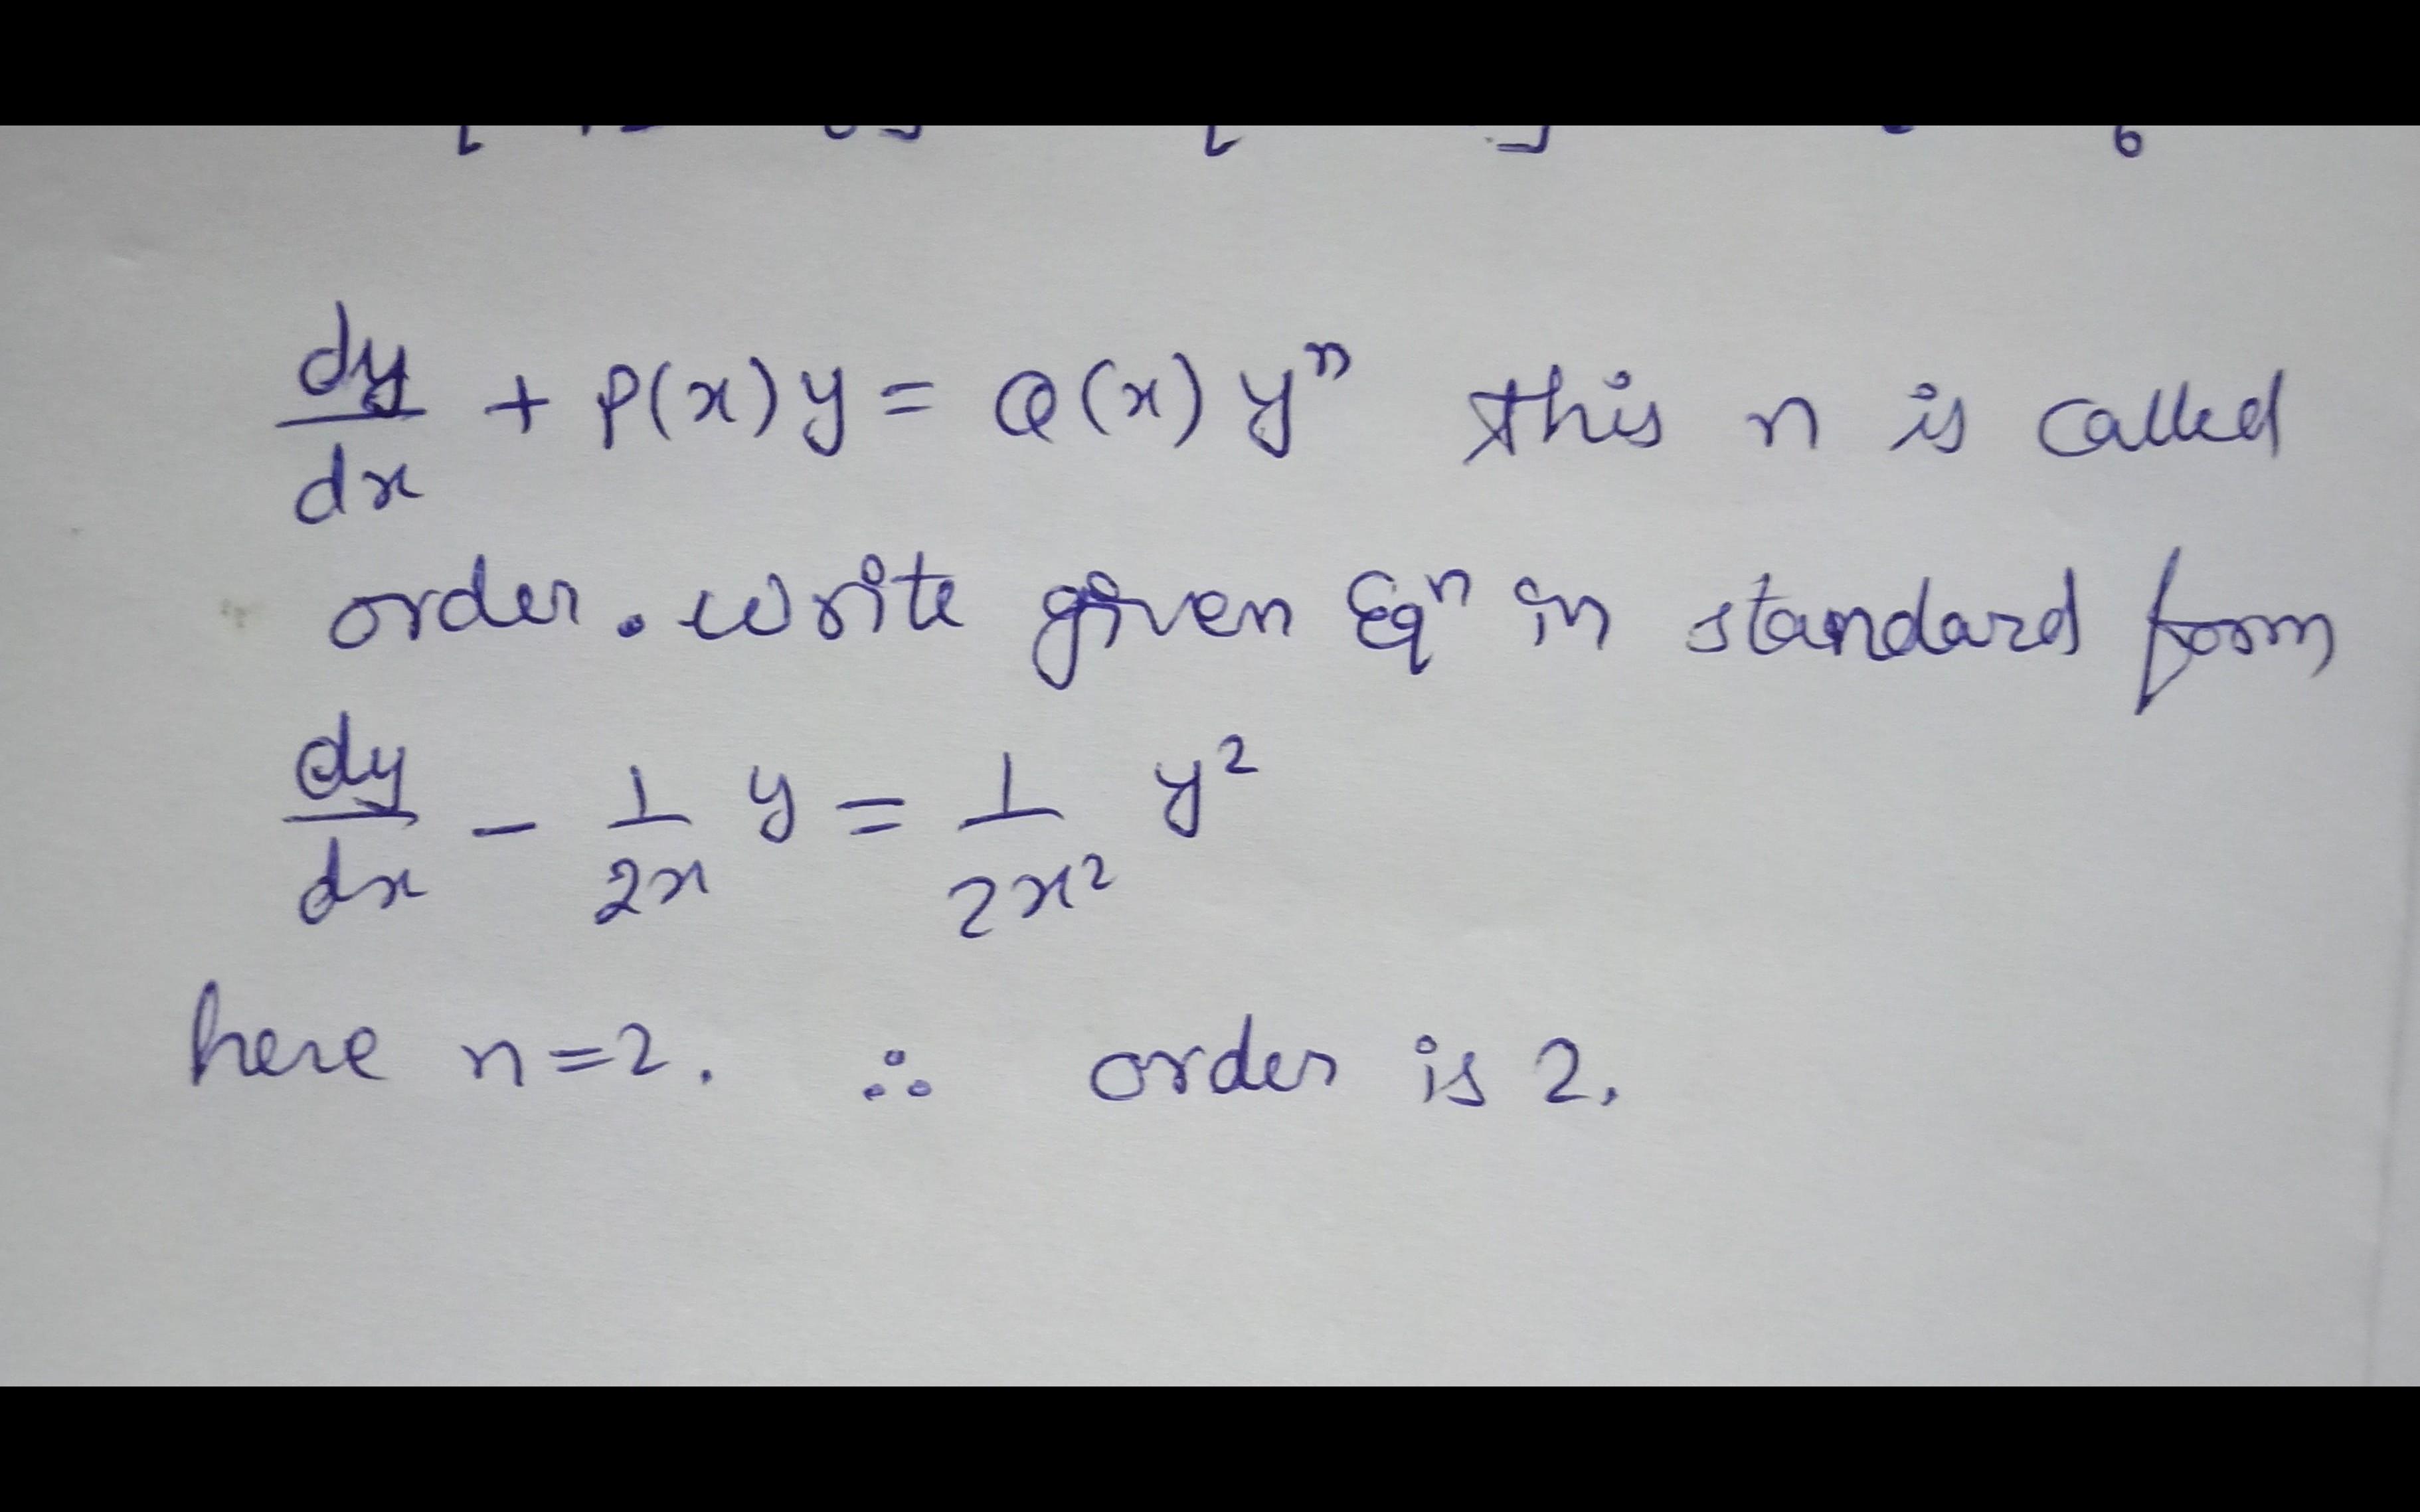 dy/dx + P(x) y = Q(x) yⁿ this n is called
order. write given Eqⁿ in standard form
dy/dx - 1/2x y = 1/2x² y²
here n=2. ∴ order is 2.